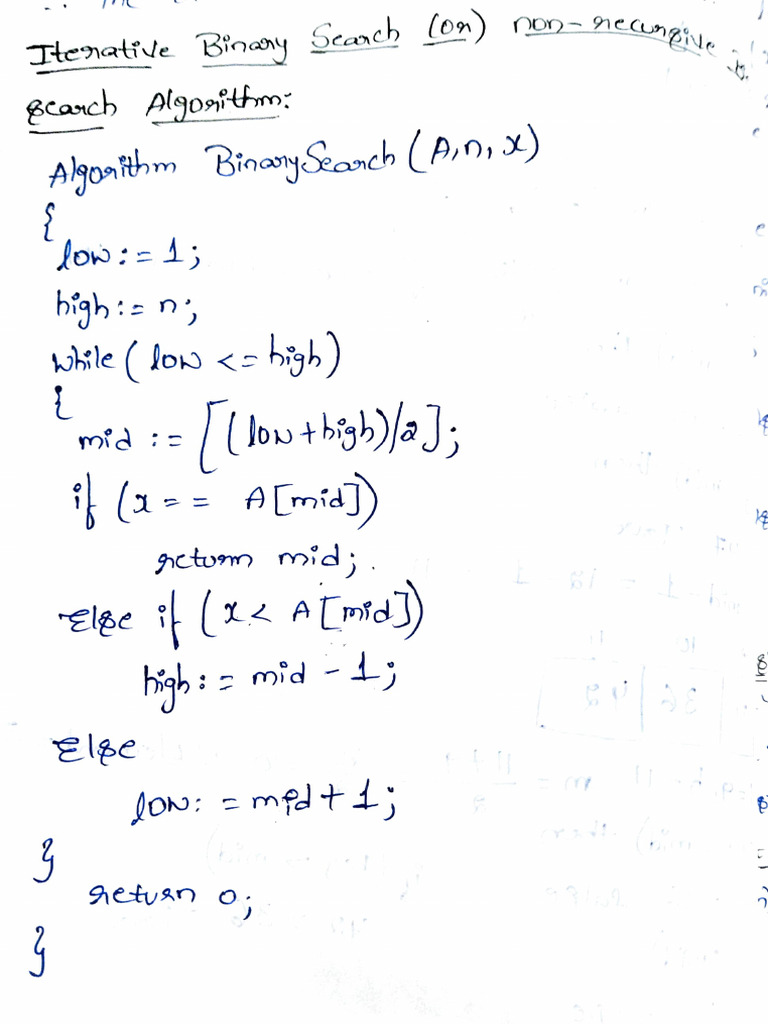 the
Iterative Binary Search (or) non-recursive b.
search Algorithm:
Algorithm BinarySearch (A, n, x)
{
low := 1;
high := n;
while ( low <= high)
{
mid := [(low + high)/2];
if (x == A[mid])
return mid;
Else if (x < A[mid])
high := mid - 1;
Else
low := mid + 1;
}
return 0;
}